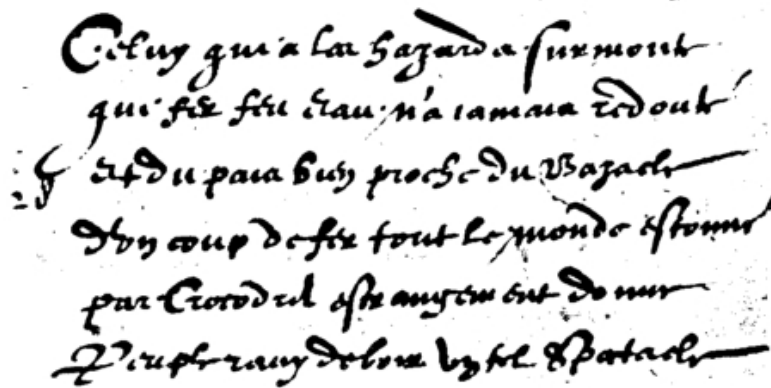 Celuy qui a les hazards surmonté
qui fer feu eau n'a iamais redouté
et du pais bien proche du Bazacle
d'vn coup de fer tout le monde estonné
par Crocodril estrangement donné
Peuple rauy de veoir vn tel spectacle